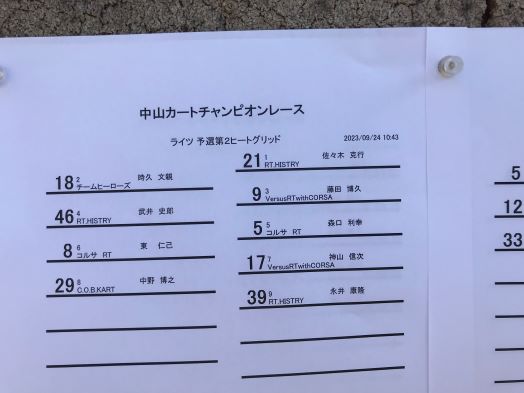 中山カートチャンピオンレース
ライツ 予選第2ヒートグリッド
2023/09/24 10:43
21 1 佐々木 克行
RT.HISTRY
18 2 時久 文親
チームヒーローズ
9 3 藤田 博久
VersusRTwithCORSA
46 4 武井 史郎
RT.HISTRY
5 5 森口 利幸
コルサ RT
8 6 東 仁己
コルサ RT
17 7 神山 信次
VersusRTwithCORSA
29 8 中野 博之
C.O.B.KART
39 9 永井 康隆
RT.HISTRY
5
12
33